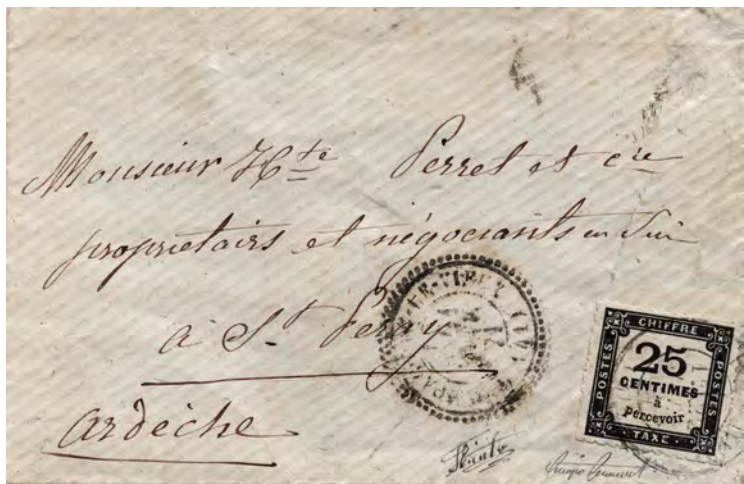 Monsieur Hte Perret et cie
propriétairs et négociants en vin
à St Péray
ardèche
CHIFFRE
POSTES
25
CENTIMES
à
percevoir
POSTES
TAXE